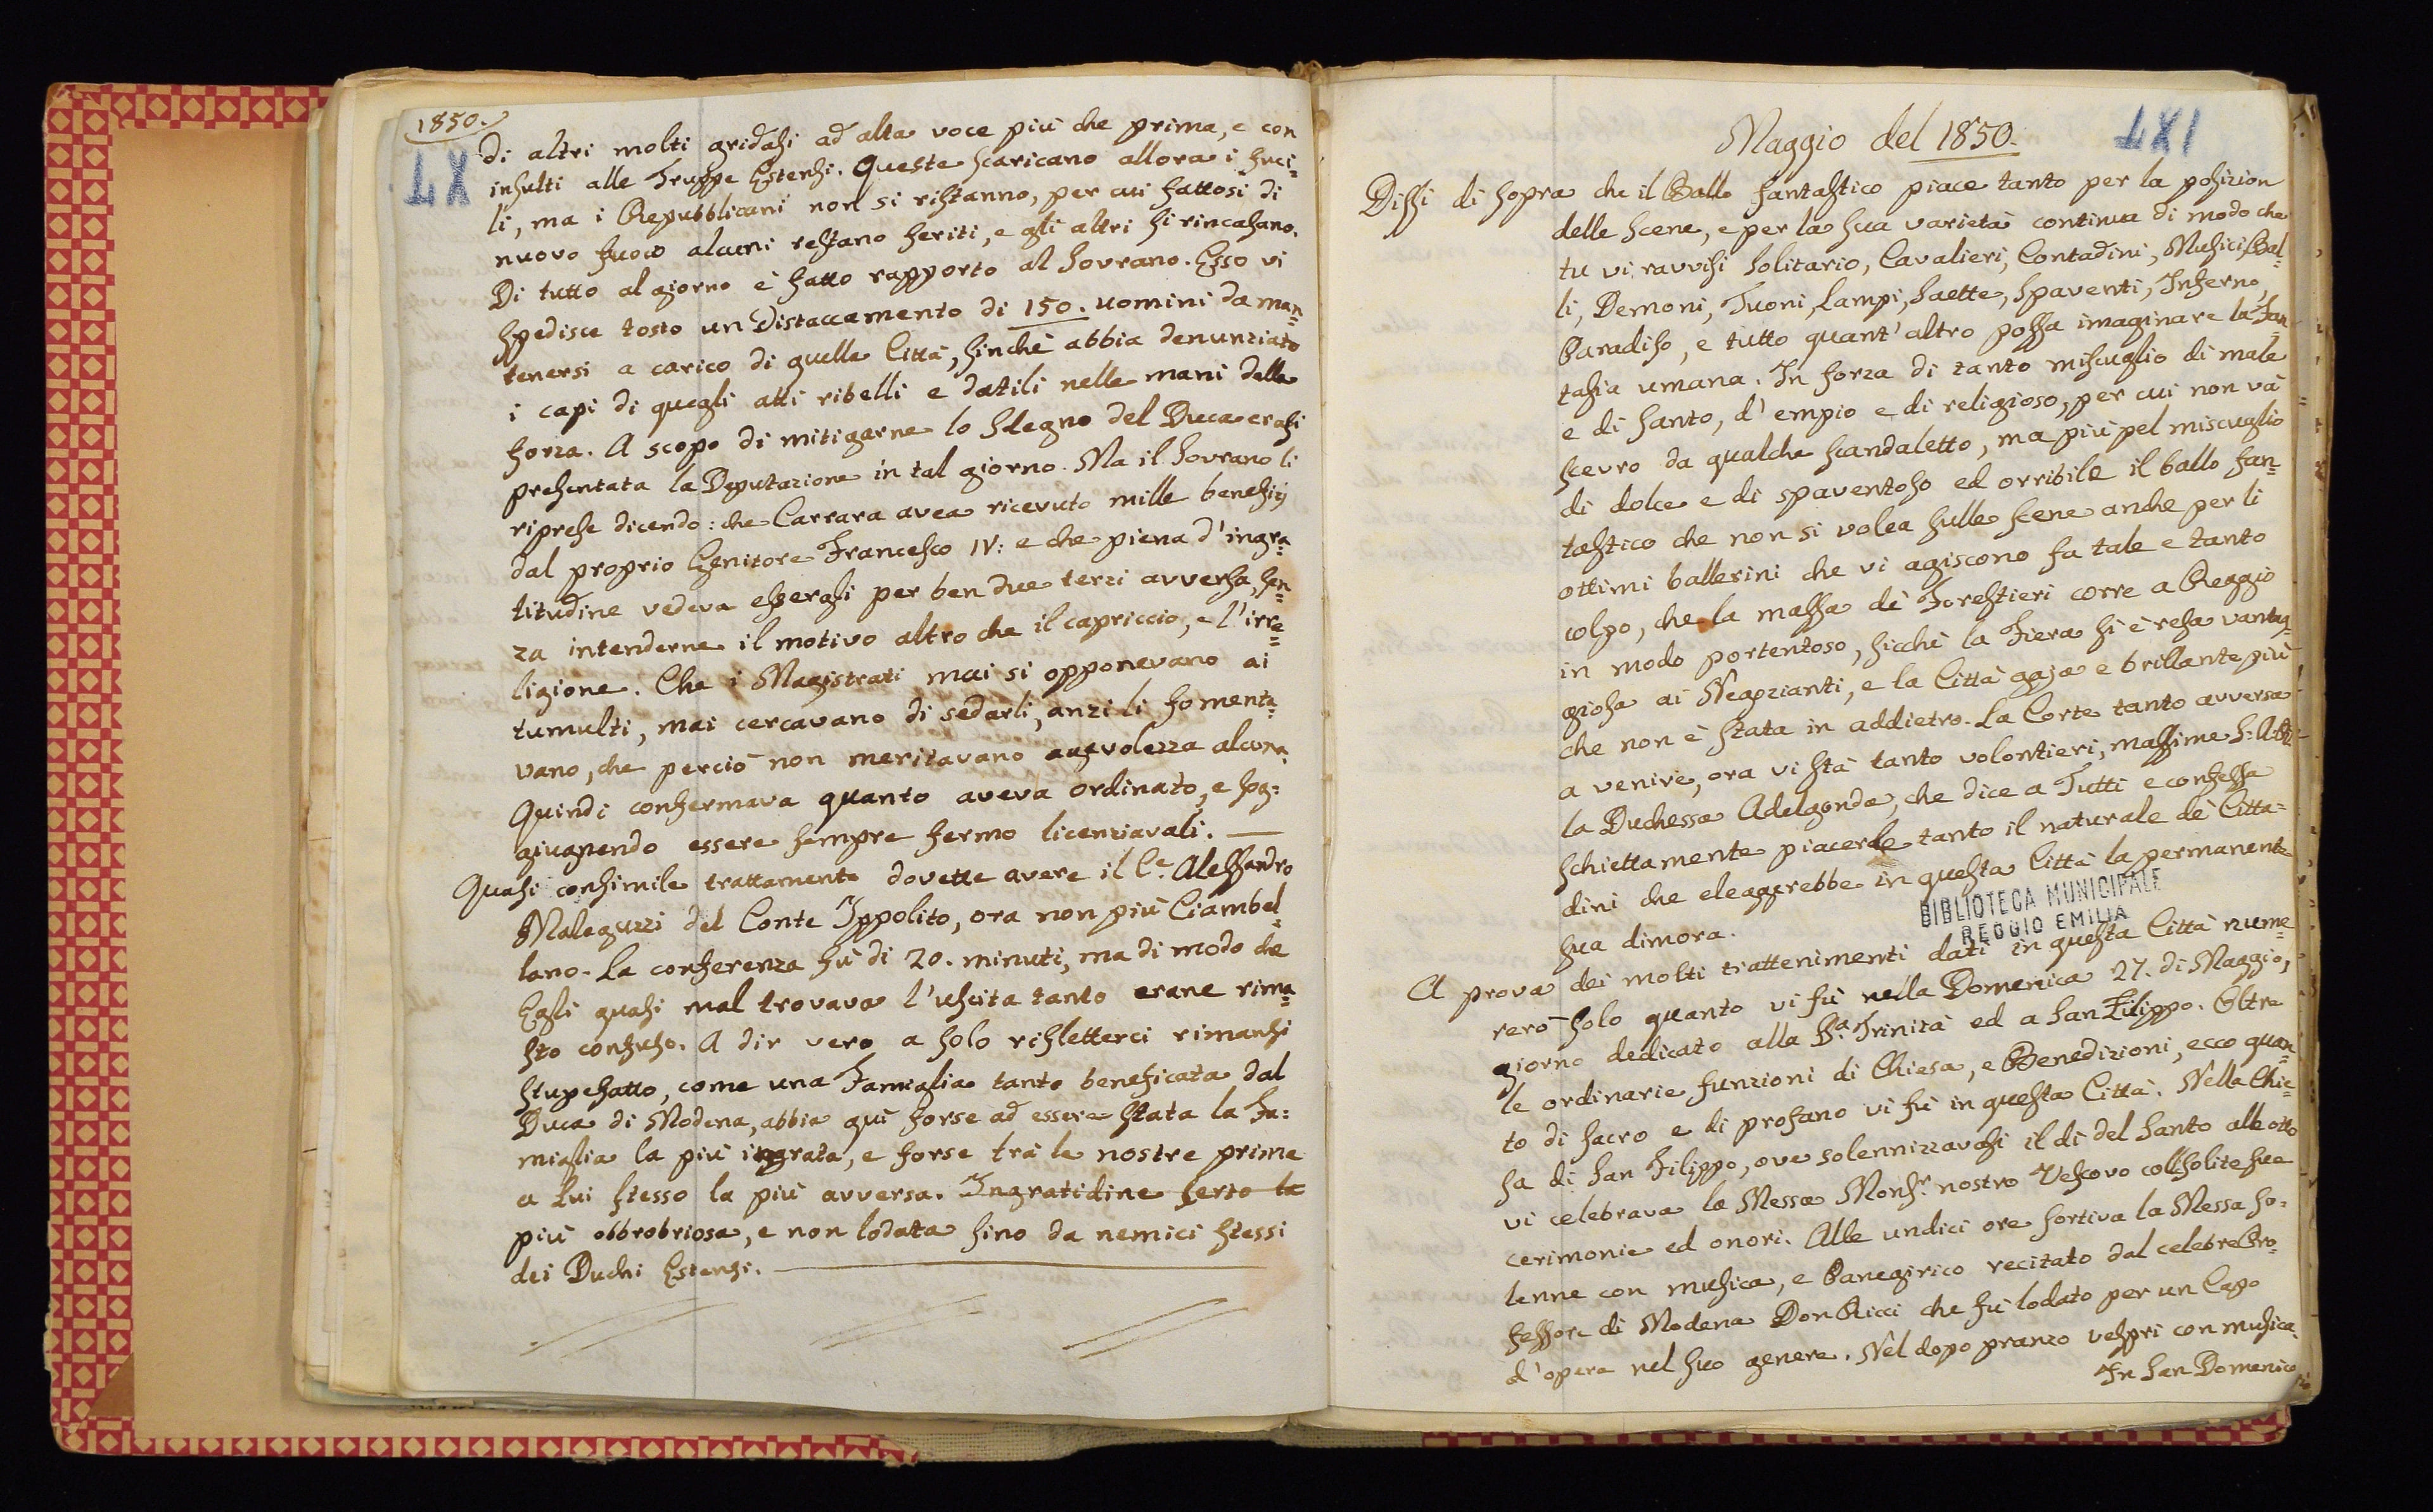 1850.
LX
di altri molti gridasi ad alta voce più che prima, e con
insulti alle Truppe Estensi. Queste scaricano allora i fuci=
li, ma i Repubblicani non si ristanno, per cui fattosi di
nuovo fuoco alcuni restano feriti, e gli altri si rincasano.
Di tutto al giorno è fatto rapporto al Sovrano. Esso vi
spedisce tosto un Distaccamento di 150. uomini da man=
tenersi a carico di quella Città, sinchè abbia denunziato
i capi di quegli atti ribelli e datili nelle mani della
forza. A scopo di mitigarne lo sdegno del Duca erasi
presentata la Deputazione in tal giorno. Ma il Sovrano li
riprese dicendo: che Carrara avea ricevuto mille beneficj
dal proprio Genitore Francesco IV: e che piena d'ingra=
titudine vedeva essergli per ben due terzi avversa, sen=
za intenderne il motivo altro che il capriccio, e l'irre=
ligione. Che i Magistrati mai si opponevano ai
tumulti, mai cercavano di sedarli, anzi li fomenta=
vano, che perciò non meritavano augvolezza alcuna.
Quindi confermava quanto aveva ordinato, e sog=
giugnendo essere sempre fermo licenziavali.
Quasi consimile trattamento dovette avere il C.e Alessandro
Maleguzzi del Conte Ippolito, ora non più Ciambel=
lano. La conferenza fù di 20. minuti, ma di modo che
Egli quasi mal trovava l'uscita tanto erane rima=
sto confuso. A dir vero a solo rifletterci rimansi
stupefatto, come una Famiglia tanto beneficata dal
Duca di Modena, abbia quì forse ad essere stata la Fa=
miglia la più ingrata, e forse trà le nostre prime
a Lui stesso la più avversa. Ingratidine certo la
più obbrobriosa, e non lodata sino da nemici stessi
dei Duchi Estensi.
Maggio del 1850.
LXI
Dissi di sopra che il Ballo fantastico piace tanto per la posizion
delle scene, e per la sua varietà continua di modo che
tu vi ravvisi Solitario, Cavalieri, Contadini, Musici, Bal=
li, Demoni, Tuoni, Lampi, Saette, Spaventi, Inferno,
Paradiso, e tutto quant'altro possa imaginare la Fan=
tasia umana. In forza di tanto miscuglio di male
e di santo, d'empio e di religioso, per cui non và
scevro da qualche scandaletto, ma più pel miscuglio
di dolce e di spaventoso ed orribile il ballo fan=
tastico che non si volea sulle scene anche per li
ottimi ballerini che vi agiscono fa tale e tanto
colpo, che la massa dè Forestieri corre a Reggio
in modo portentoso, sicchè la Fiera si è resa vantag=
giosa ai Negozianti, e la Città gaja e brillante più
che non è stata in addietro. La Corte tanto avversa
a venire, ora vi stà tanto volontieri, massime S. A. R.
la Duchessa Adelgonda, che dice a Tutti e confessa
schiettamente piacerle tanto il naturale dè Citta=
dini che eleggerebbe in questa Città la permanente
sua dimora.
BIBLIOTECA MUNICIPALE
REGGIO EMILIA
A prova dei molti trattenimenti dati in questa Città nume=
rerò solo quanto vi fù nella Domenica 27. di Maggio,
giorno dedicato alla S.a Trinità ed a San Filippo. Oltre
le ordinarie funzioni di Chiesa, e Benedizioni, ecco quan=
to di sacro e di profano vi fù in questa Città. Nella Chie=
sa di San Filippo, ove solennizzavasi il dì del Santo alle otto
vi celebrava la Messa Monsr. nostro Vescovo coll solite sue
cerimonie ed onori. Alle undici ore sortiva la Messa so=
lenne con musica, e Panegirico recitato dal celebre Pro=
fessore di Modena Don Ricci che fù lodato per un Capo
d'opera nel suo genere. Nel dopo pranzo vespri con musica.
In San Domenico